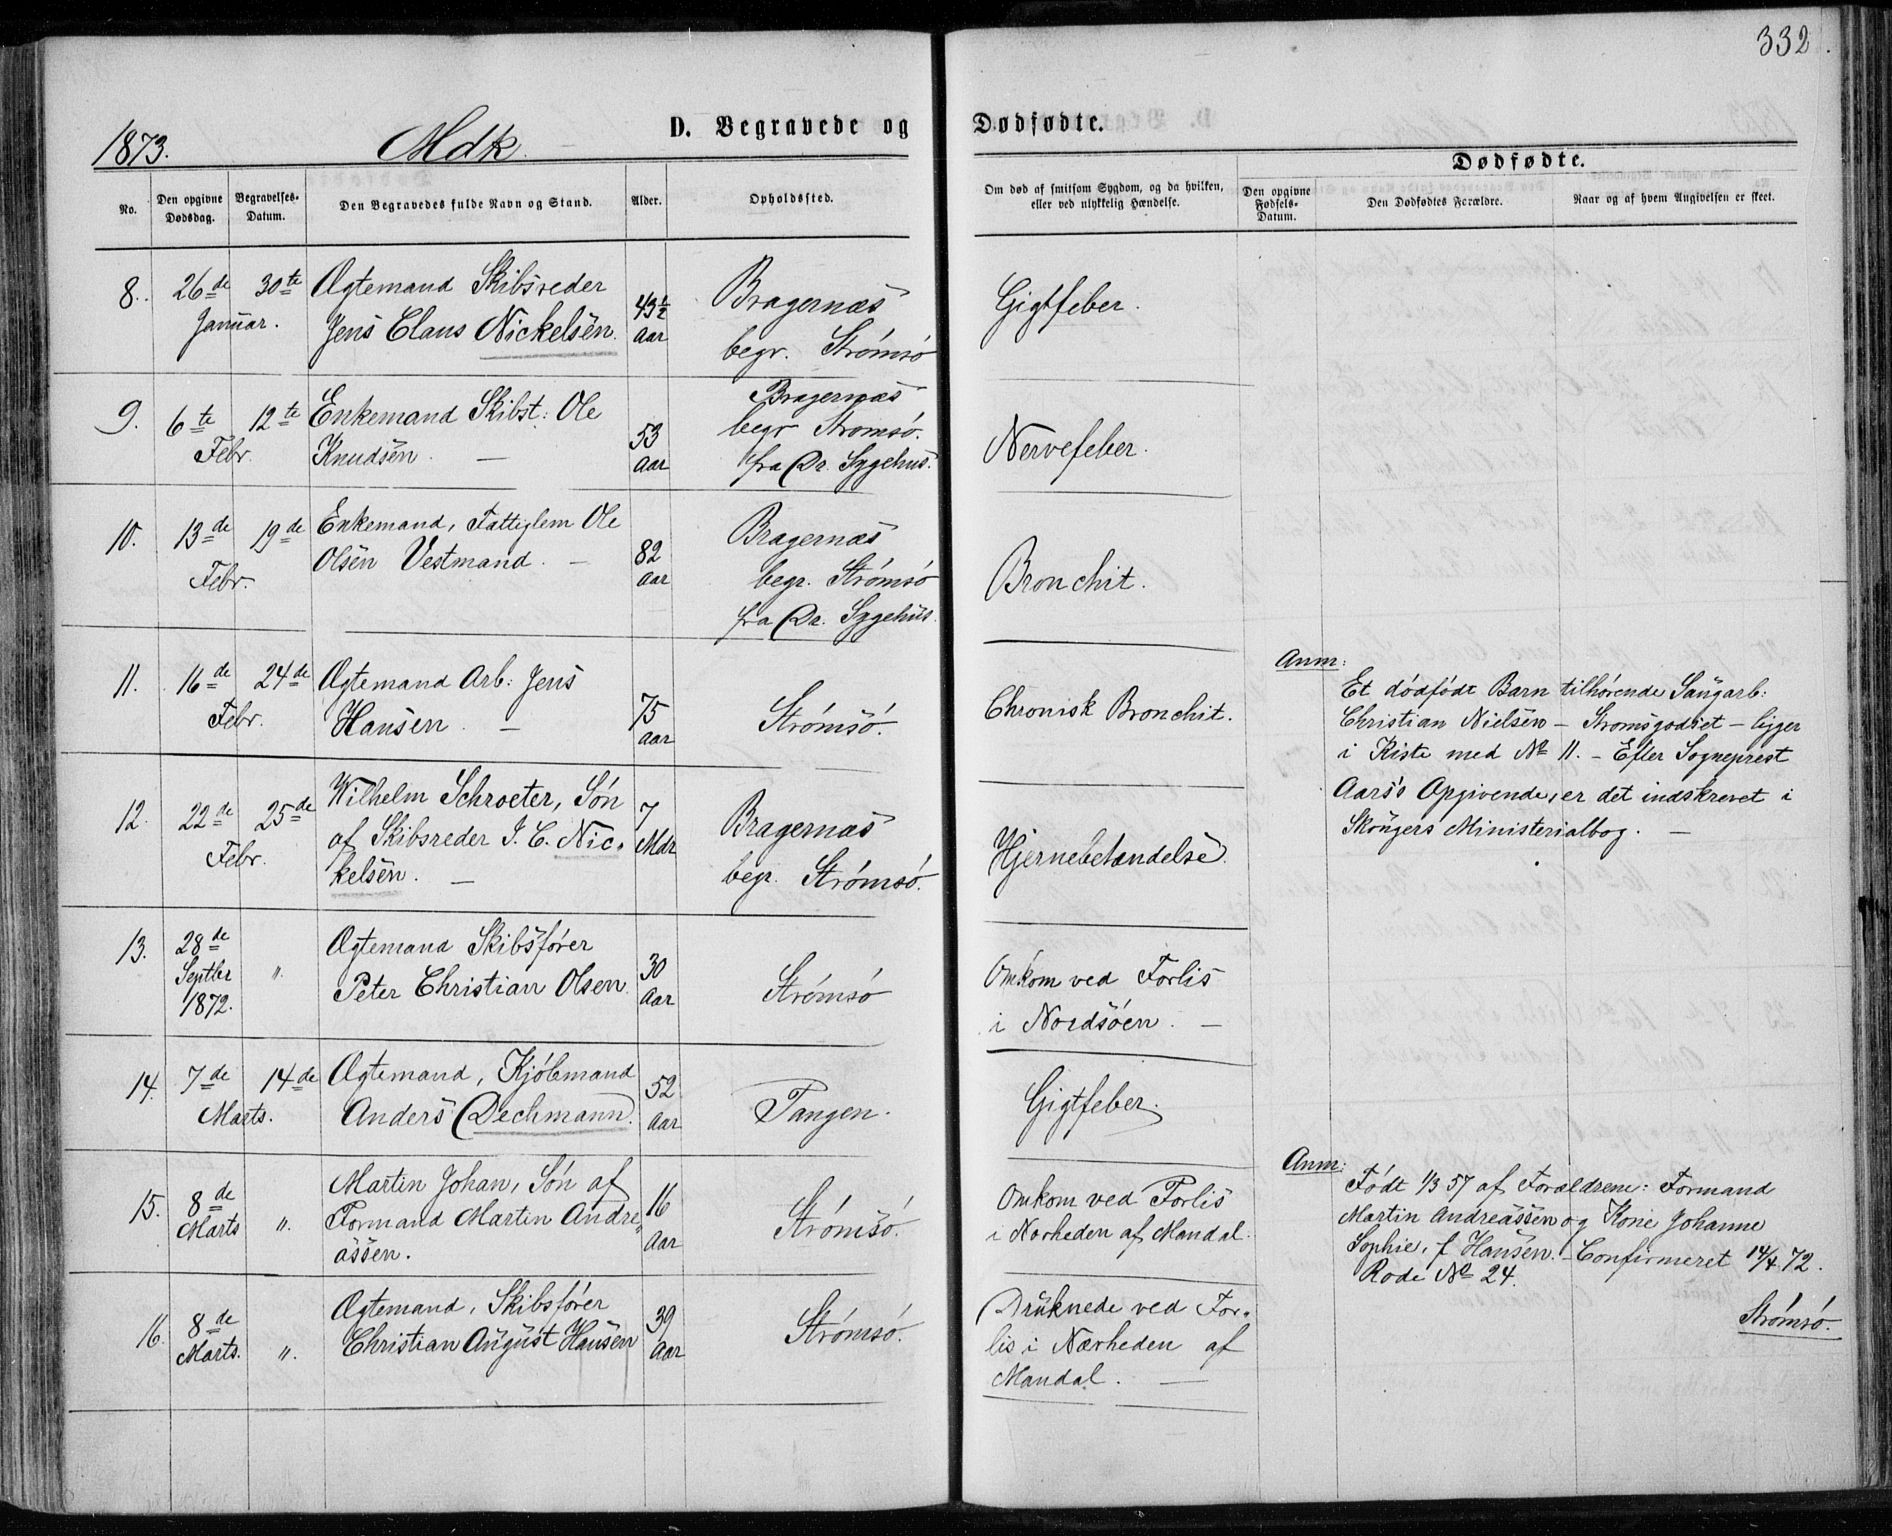 332.
1873.
Mdk.
D. Begravede og Dødfødte.
Dødfødte.
No.
Den opgivne Dødsdag.
Begravelses-Datum.
Den Begravedes fulde Navn og Stand.
Alder.
Opholdssted.
Om død af smitsom Sygdom, og da hvilken,
eller ved ulykkelig Hændelse.
Den opgivne Fødsels-Datum.
Den Dødfødtes Forældre.
Naar og af hvem Angivelsen er skeet.
8. 26de 30te Ægtemand Skibsreder 43½ Bragernæs Gigtfeber.
Januar. Jens Claus Nickelsen. Aar begr. Strømsö
9. 6te 12te Enkemand Skibst: Ole 53 Bragernæs Nervefeber.
Febr. Knudsen. — Aar begr Strømsö.
fra Dr. Sygehus.
10. 13de 19de Enkemand, Fattiglem Ole 82 Bragernæs Bronchit.
Febr. Olsen Vestmand. — Aar begr. Strømsö
fra Dr. Sygehus.
11. 16de 24de Ægtemand Arb: Jens 75 Strømsö. Chronisk Bronchit.
Febr. Hansen. — Aar
Anm:
Et dødfødt Barn tilhørende Saugarb:
Christian Nielsen — Stromsgodset — ligger
i Kiste med No 11. — Efter Sogneprest
Aars's Opgivende, er det indskrevet i
Skougers Ministerialbog. —
12. 22de 25de Wilhelm Schroeter, Søn 7 Bragernæs Hjernebetændelse.
Febr. af Skibsreder J. C. Nic- Mdr begr. Strømsö.
kelsen. —
13. 28de " Ægtemand Skibsfører 30 Strømsö Omkom ved Forlis
Septbr Peter Christian Olsen. Aar i Nordsöen. —
1872.
14. 7de 14de Ægtemand, Kjöbmand 52 Tangen. Gigtfeber.
Marts. Anders Dechmann. Aar
15. 8de " Martin Johan, Søn af 16 Strømsö. Omkom ved Forlis
Marts Formand Martin Andre- Aar i Nærheden af Mandal.
assen.
Anm:
Född 1/3 57 af Forældrene: Formand
Martin Andreassen og Kone Johanne
Sophie, f Hansen. — Confirmeret 14/4 72.
Rode No 24.
Strømsö.
16. 8de " Ægtemand, Skibsfører 39 Strømsö. Druknede ved For-
Marts. Christian August Hansen Aar lis i Nærheden af
Mandal. —